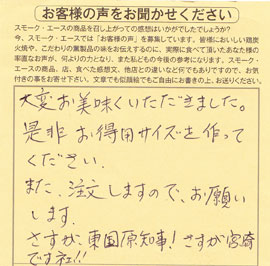 お客様の声をお聞かせください
スモーク・エースの商品を召し上がっての感想はいかがでしたでしょうか?
今、スモーク・エースでは「お客様の声」を募集しています。皆様においしい鶏炭
火焼や、こだわりの薫製品の味をお伝えするのに、実際に食べて頂いたあなた様の
率直なお声が、何よりの力となり、また私どもの今後の参考になります。スモーク・
エースの商品、店、食べた感想文、他店との違いなど何でもありですので、お気
付きの事をお寄せ下さい。文章でも似顔絵でもご自由にお書きの上、お送りください。
大変お美味くいただきました。
是非 お得用サイズを作って
ください。
また、注文しますので、お願い
します。
さすが、東国原知事!さすが宮崎
です社!!